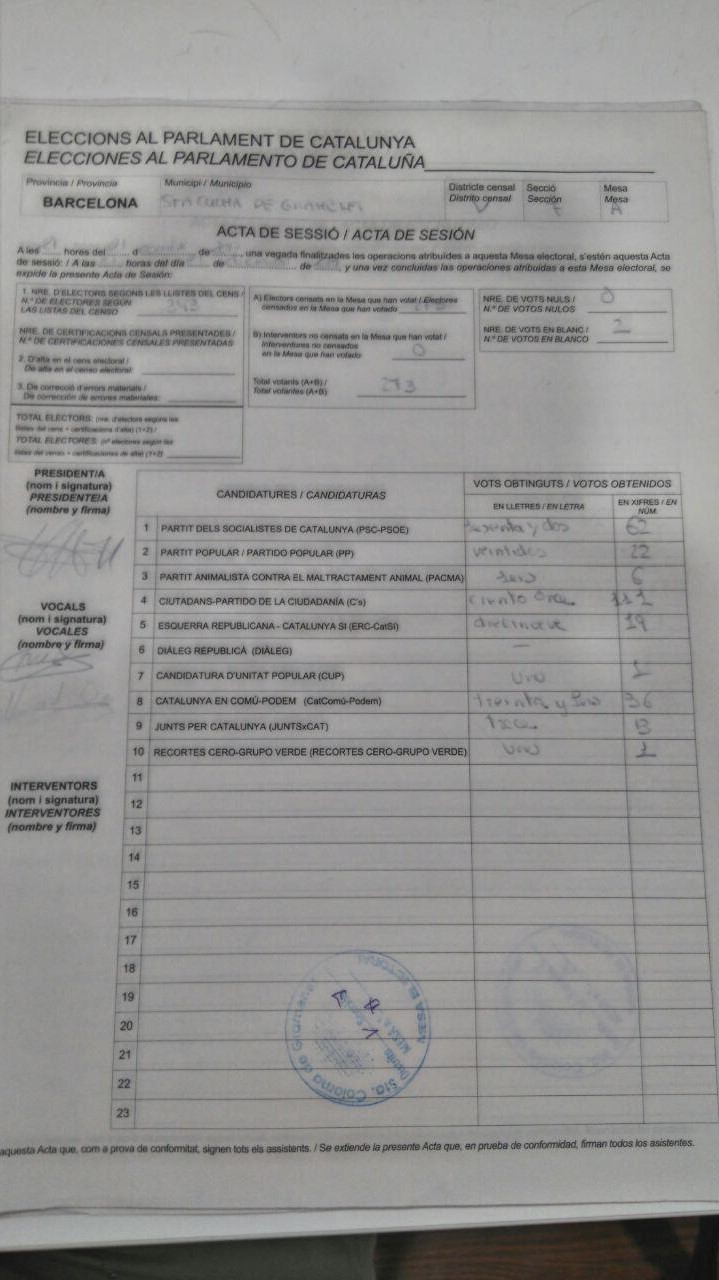 ELECCIONS AL PARLAMENT DE CATALUNYA
ELECCIONES AL PARLAMENTO DE CATALUÑA
Provincia / Provincia Municipi / Municipio Districte censal Secció Mesa
Distrito censal Sección Mesa
BARCELONA STA COLOMA DE A
ACTA DE SESSIÓ / ACTA DE SESIÓN
A les hores del d de , una vegada finalitzades les operacions atribuïdes a aquesta Mesa electoral, s'estén aquesta Acta
de sessió: / A las horas del día de de y una vez concluidas las operaciones atribuidas a esta Mesa electoral, se
expide la presente Acta de Sesión:
1. NRE. D'ELECTORS SEGONS LES LLISTES DEL CENS /
N.º DE ELECTORES SEGÚN
LAS LISTAS DEL CENSO
NRE. DE CERTIFICACIONS CENSALS PRESENTADES /
N.º DE CERTIFICACIONES CENSALES PRESENTADAS
2. D'alta en el cens electoral /
De alta en el censo electoral:
3. De correcció d'errors materials /
De corrección de errores materiales:
TOTAL ELECTORS: (nre. d'electors segons les
llistes del cens + certificacions d'alta) (1+2) /
TOTAL ELECTORES: (nº electores según las
listas del censo + certificaciones de alta) (1+2)
A) Electors censats en la Mesa que han votat / Electores
censados en la Mesa que han votado 273
B) Interventors no censats en la Mesa que han votat /
Interventores no censados
en la Mesa que han votado 0
Total votants (A+B) /
Total votantes (A+B) 273
NRE. DE VOTS NULS /
N.º DE VOTOS NULOS 0
NRE. DE VOTS EN BLANC /
N.º DE VOTOS EN BLANCO 2
PRESIDENT/A
(nom i signatura)
PRESIDENTE/A
(nombre y firma)
VOCALS
(nom i signatura)
VOCALES
(nombre y firma)
INTERVENTORS
(nom i signatura)
INTERVENTORES
(nombre y firma)
CANDIDATURES / CANDIDATURAS VOTS OBTINGUTS / VOTOS OBTENIDOS
EN LLETRES / EN LETRA EN XIFRES / EN NÚM.
1 PARTIT DELS SOCIALISTES DE CATALUNYA (PSC-PSOE) sesenta y dos 62
2 PARTIT POPULAR / PARTIDO POPULAR (PP) veintidos 22
3 PARTIT ANIMALISTA CONTRA EL MALTRACTAMENT ANIMAL (PACMA) seis 6
4 CIUTADANS-PARTIDO DE LA CIUDADANÍA (C's) ciento once 111
5 ESQUERRA REPUBLICANA - CATALUNYA SI (ERC-CatSI) diecinueve 19
6 DIÀLEG REPUBLICÀ (DIÀLEG) —
7 CANDIDATURA D'UNITAT POPULAR (CUP) uno 1
8 CATALUNYA EN COMÚ-PODEM (CatComú-Podem) treinta y seis 36
9 JUNTS PER CATALUNYA (JUNTSxCAT) trece 13
10 RECORTES CERO-GRUPO VERDE (RECORTES CERO-GRUPO VERDE) uno 1
11
12
13
14
15
16
17
18
19
20
21
22
23
MESA ELECTORAL
Sta. Coloma de Gramenet
Districte
aquesta Acta que, com a prova de conformitat, signen tots els assistents. / Se extiende la presente Acta que, en prueba de conformidad, firman todos los asistentes.